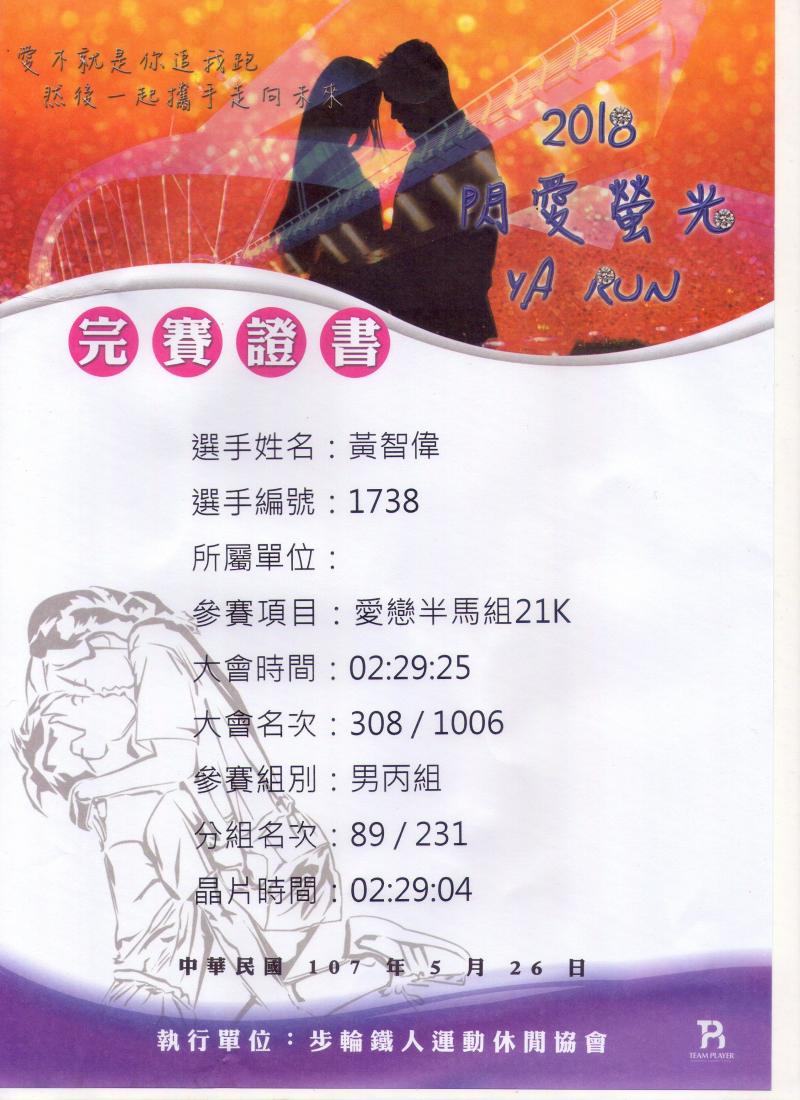 愛不就是你追我跑
然後一起攜手走向未來
2018
閃愛螢光
YA RUN
完賽證書
選手姓名：黃智偉
選手編號：1738
所屬單位：
參賽項目：愛戀半馬組21K
大會時間：02:29:25
大會名次：308 / 1006
參賽組別：男丙組
分組名次：89 / 231
晶片時間：02:29:04
中華民國 107 年 5 月 26 日
執行單位：步輪鐵人運動休閒協會
TEAM PLAYER